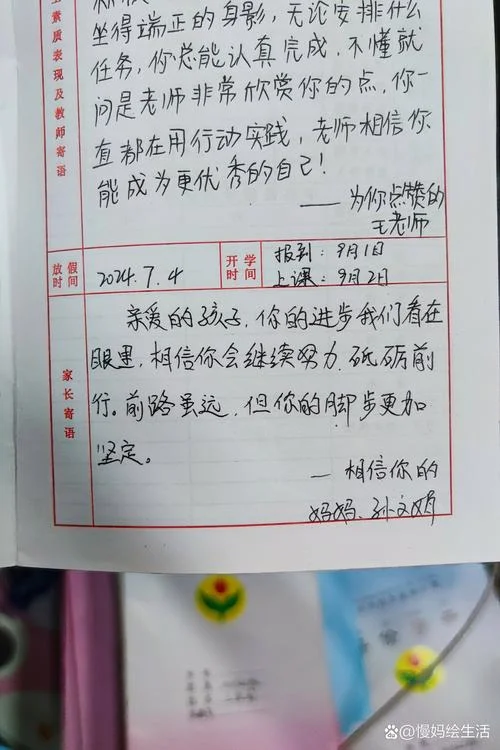 坐得端正的身影,无论安排什么
任务,你总能认真完成,不懂就
问是老师非常欣赏你的点,你一
直都在用行动实践,老师相信你
能成为更优秀的自己!
——为你点赞的
王老师
素质表现及教师寄语
放假时间
2024.7.4
开学时间
报到:9月1日
上课:9月2日
家长寄语
亲爱的孩子,你的进步我们看在
眼里,相信你会继续努力,砥砺前
行。前路虽远,但你的脚步更加
坚定。
—相信你的
妈妈、孙文娟
百度@慢妈绘生活